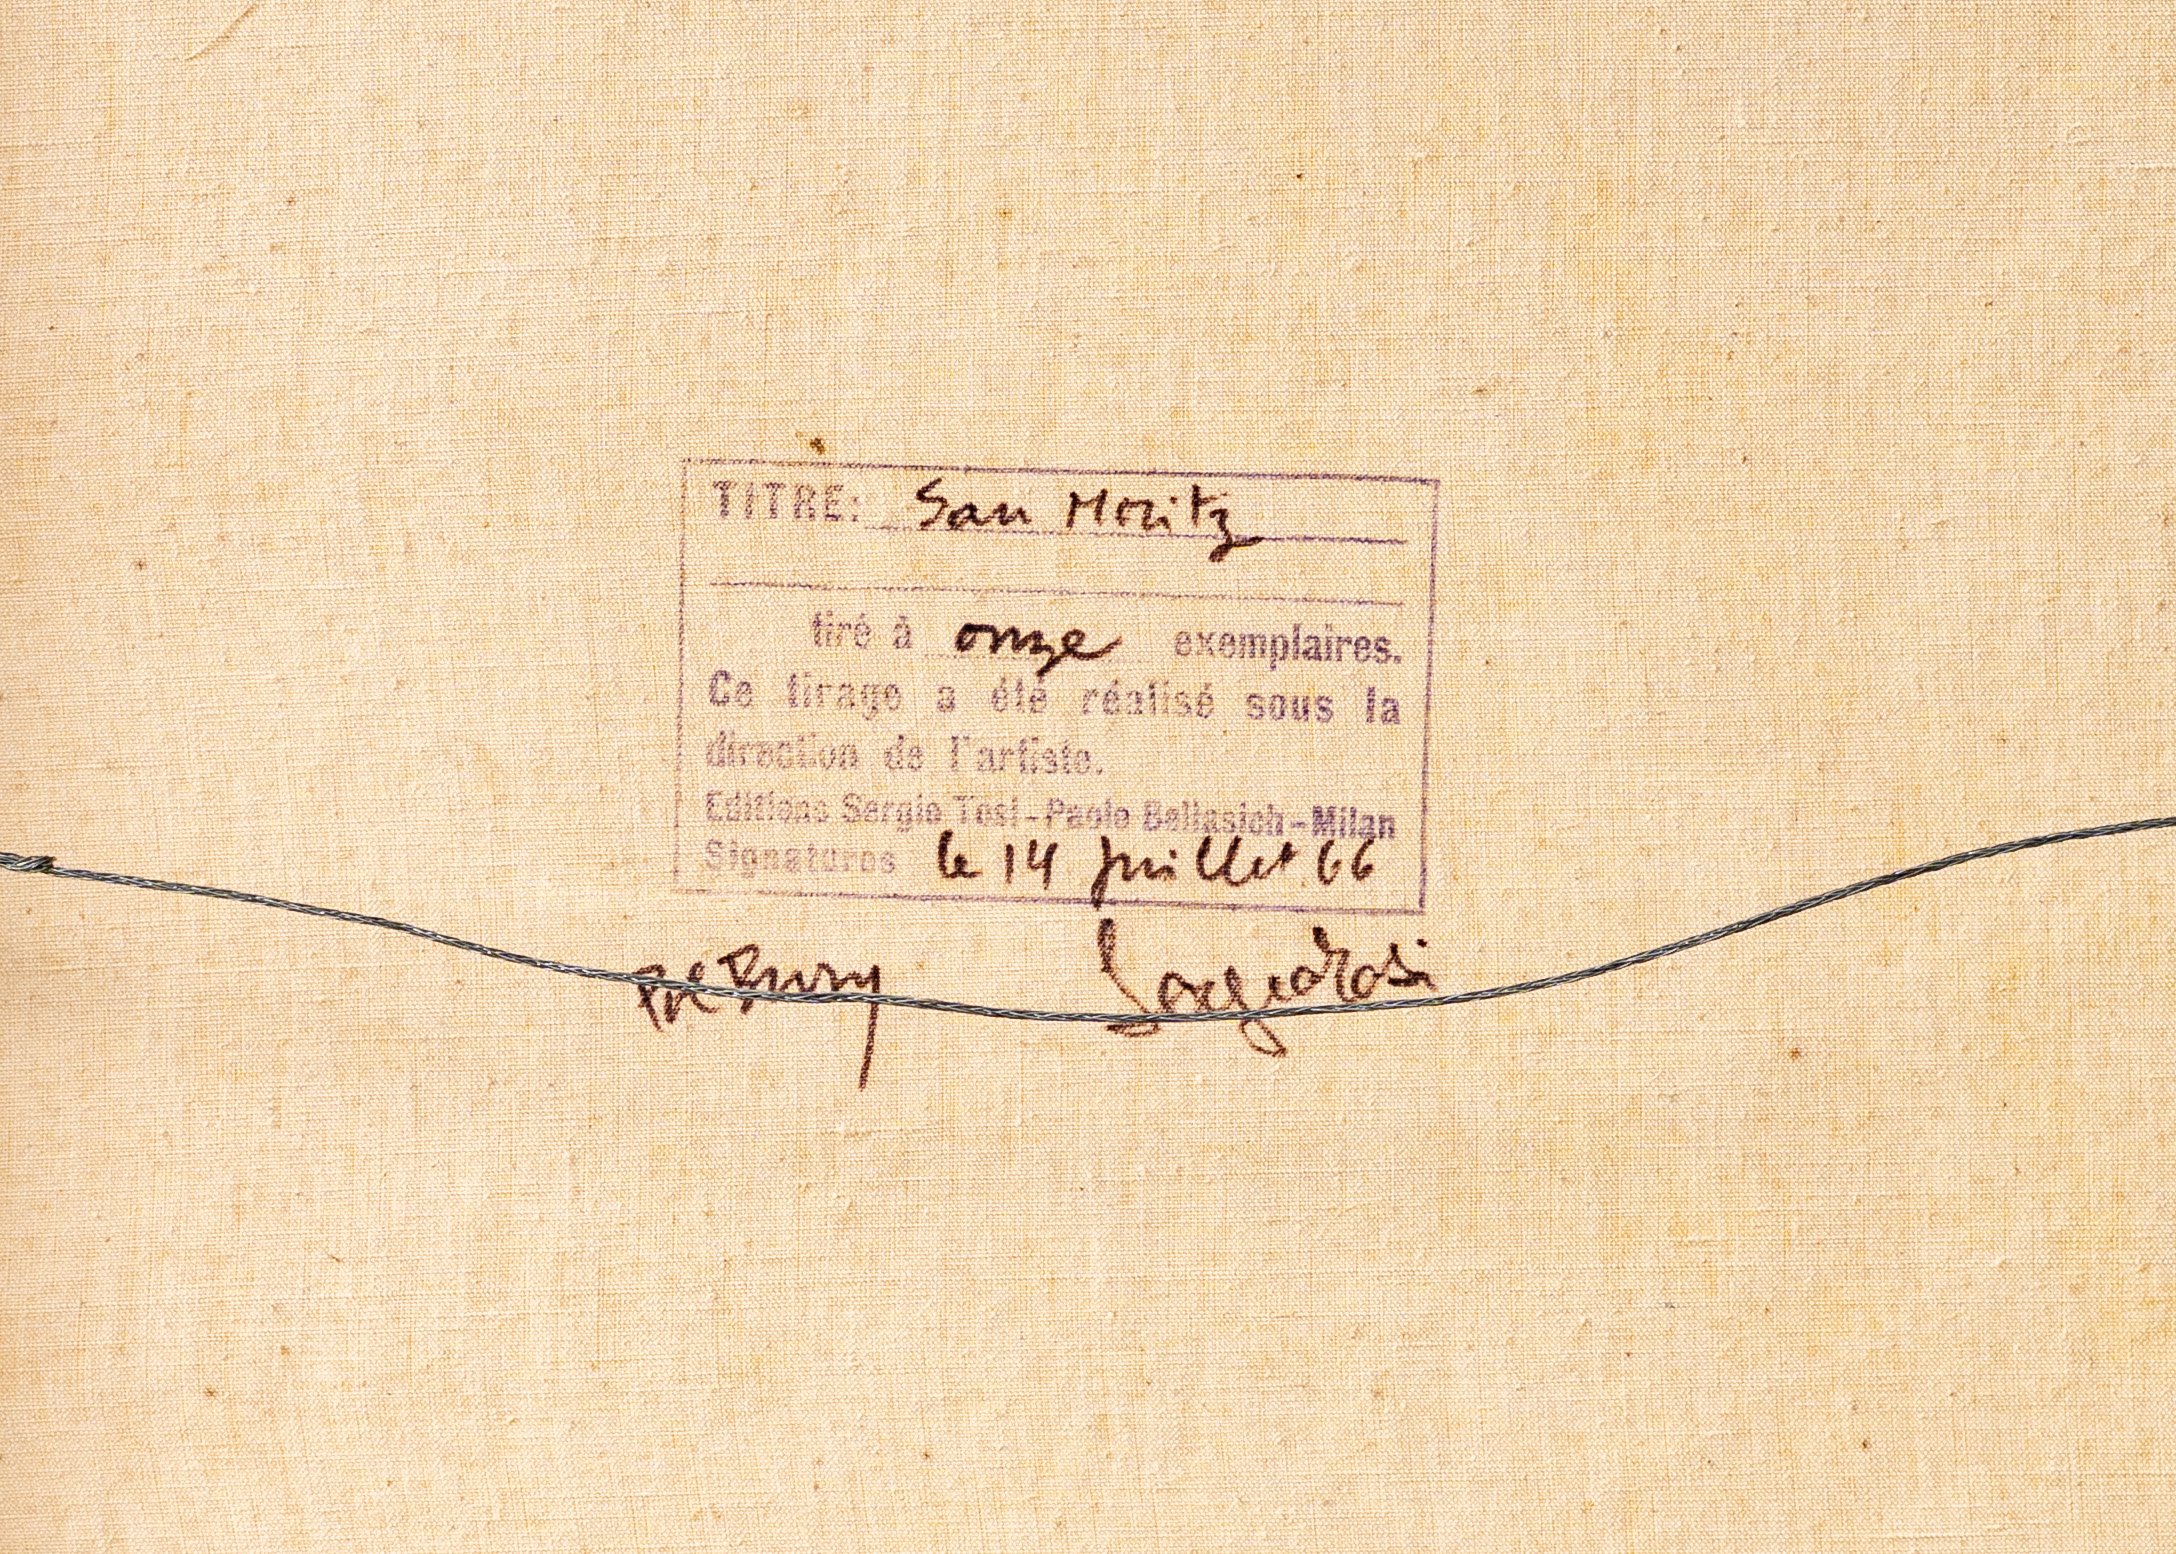 TITRE: San Moritz
tiré à onze exemplaires.
Ce tirage a été réalisé sous la
direction de l'artiste.
Editions Sergio Tosi - Paolo Bellasich - Milan
Signatures le 14 Juillet 66
Pol Bury Sergio Tosi